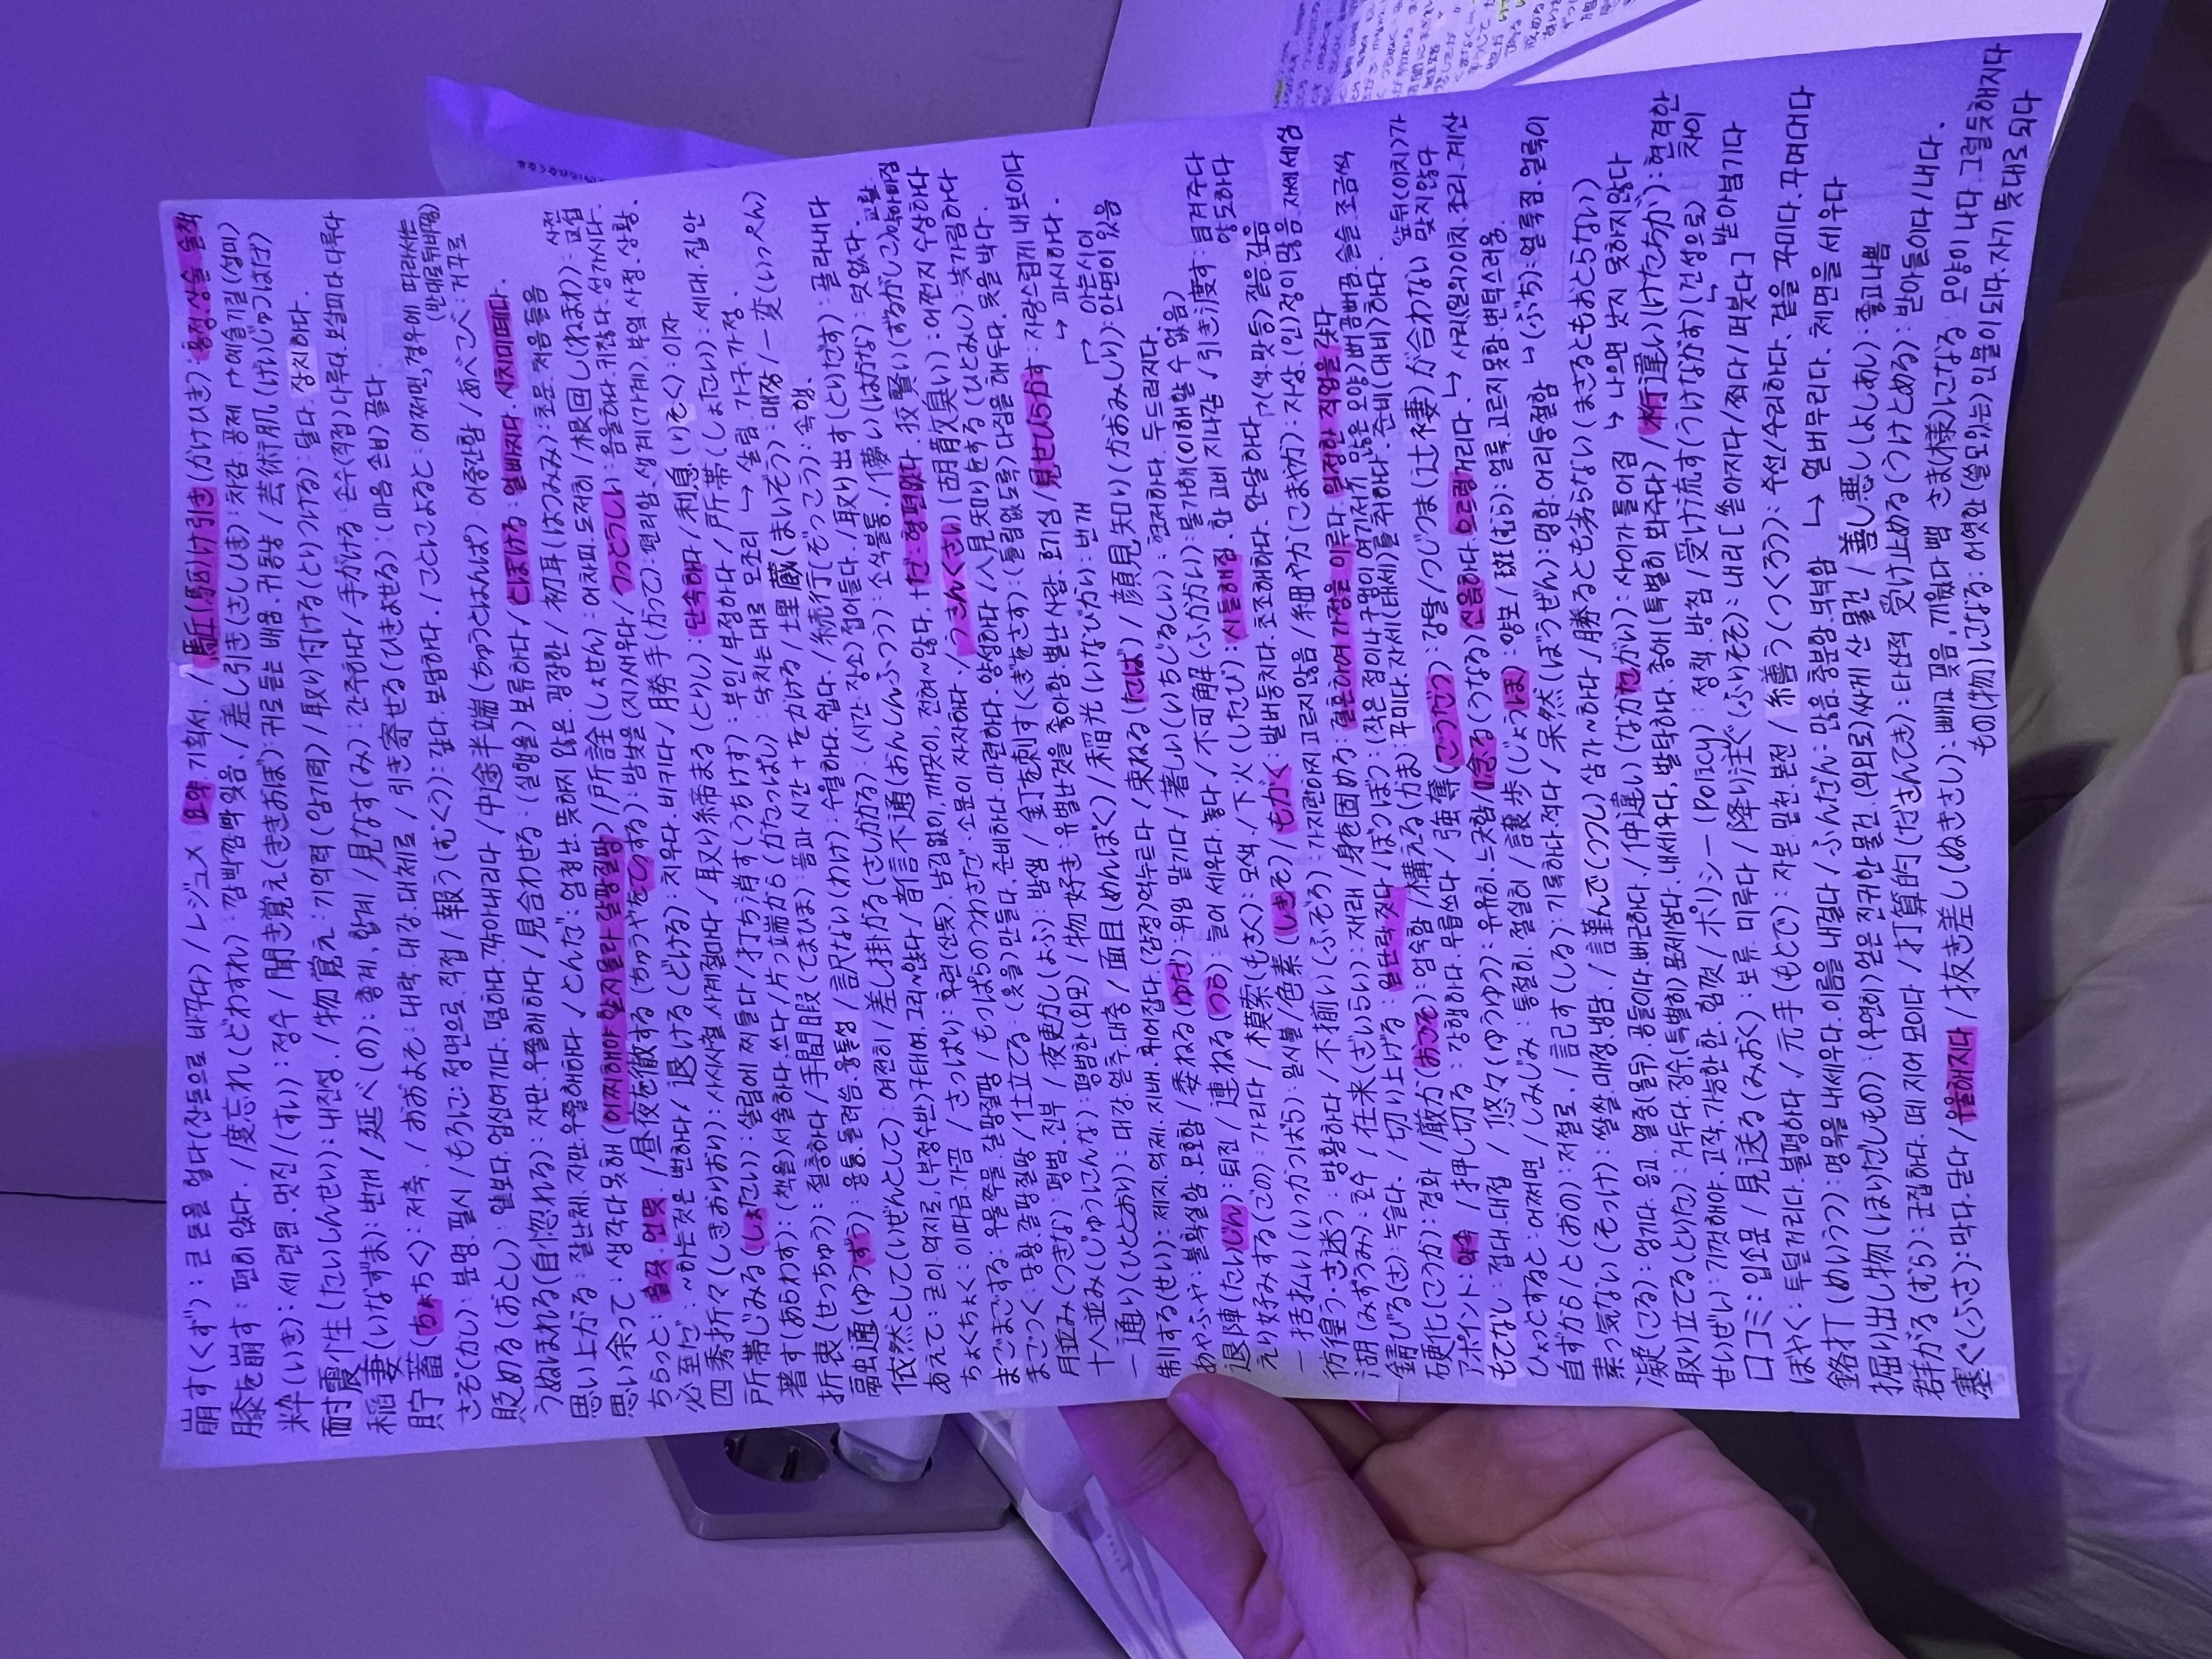 崩す(くず) : 큰 돈을 헐다(잔돈으로 바꾸다) / レジュメ 요약. 기획서. / 駈(駆)け引き(かけひき) : 흥정. 상술. 술책
膝を崩す : 편히 앉다. / 度忘れ(どわすれ) : 깜빡깜빡 잊음. / 差し引き(さしひき) : 차감. 공제
粋(いき) : 세련된. 멋진 / (すい) : 정수 / 聞き覚え(ききおぼ) : 귀로 듣는 배움. 귀동냥 / 芸術肌(げいじゅつはだ) 예술기질(성미)
耐震性(たいしんせい) : 내진성. / 物覚え : 기억력(암기력) / 取り付ける(とりつける) : 달다. 장치하다.
稲妻(いなずま) : 번개 / 延べ(の) : 총계. 합계 / 見なす(み) : 간주하다 / 手がける : 손수(직접) 다루다. 보살피다. 다루다
貯蓄(ちょちく) : 저축. / おおよそ : 대략. 대강. 대체로 / 引き寄せる(ひきよせる) : (마음. 손님) 끌다
さぞ(かし) : 분명. 필시 / もろに : 정면으로. 직접 / 報う(むくう) : 갚다. 보답하다. / ことによると : 어쩌면, 경우에 따라서는
貶める(おとし) : 얕보다. 업신여기다. 폄하다. 깎아내리다 / 中途半端(ちゅうとはんぱ) 어중간함 / あべこべ : 거꾸로 (반대로 뒤바뀜)
うぬぼれる(自惚れる) : 자만. 우쭐해하다 / 見合わせる : (실행을) 보류하다 / とぼける : 얼빠지다. 시치미떼다.
思い上がる : 잘난체. 자만. 우쭐해하다 / とんだ : 엄청난. 뜻하지 않은. 굉장한 / 初耳(はつみみ) : 초문. 처음들음
思い余って : 생각다 못해 (어찌해야 할지 몰라 갈팡질팡) / 所詮(しょせん) : 어차피. 도저히 / 根回し(ねまわ) : 사전교섭
ちらっと : 흘끗. 언뜻 / 昼夜を徹する(ちゅうやをてっする) : 밤낮을(지)새우다 /
必至だ : ~하는 것은 뻔하다. / 退ける(どける) : 치우다. 비키다 / 勝手(かって) : 편리함. 생계(가계). 부엌. 사정. 상황.
四季折々(しきおりおり) : 사시사철. 사계절마다 / 取り締まる(とりし) : 단속하다 / 利息(りそく) : 이자
所帯じみる(しょたい) : 살림에 찌들다 / 打ち消す(うちけす) : 부인/부정하다 / 所帯(しょたい) : 세대. 집안 → 살림. 가구. 가정.
著す(あらわす) : (책을)서술하다. 쓰다 / 片っ端から(かたっぱし) : 닥치는대로 모조리
折衷(せっちゅう) : 절충하다 / 手間暇(てまひま) : 품과 시간 + をかける / 埋蔵(まいぞう) : 매장 / 一変(いっぺん)
融通(ゆうずう) : 융통. 돌려씀. 융통성 / 訳ない(わけ) : 수월하다. 쉽다. / 続行(ぞっこう) : 속행.
依然として(いぜんとして) : 여전히 / 差し掛かる(さしかかる) : (시간. 장소) 접어들다. / 取り出す(とりだす) : 골라내다
あえて : 굳이. 억지로. (부정수반)구태여. 그리~않다. / 音信不通(おんしんふつう) : 소식불통. / 儚い(はかな) : 덧없다.
ちょくちょく : 이따금. 가끔 / さっぱり : 후련(산뜻). 남김없이. 깨끗이. 전혀~않다. 狡賢い(ずるがしこ)
まごまごする : 우물쭈물. 갈팡질팡 / もっぱらのうわさだ : 소문이 자자하다. / うさんくさい(胡散臭い) : 어쩐지 수상하다
まごつく : 당황. 갈팡질팡 / 仕立てる : (옷을)만들다. 준비하다. 마련하다. 양성하다 / 人見知りをする(ひとみし) : 낯가림하다
月並み(つきな) : 평범. 진부 / 夜更かし(よふ) : 밤샘 / 釘を刺す(くぎをさす) : (틀림없도록) 다짐을 해두다. 못을 박다.
十人並み(じゅうにんな) : 평범한(외모) / 物好き : 유별난 것을 좋아함. 별난 사람. 호기심 / 見せびらかす : 자랑스럽게 내보이다 → 과시하다.
一通り(ひととおり) : 대강. 얼추. 대충 / 面目(めんぼく) / 稲光(いなびかり) : 번개
制する(せい) : 제지. 억제. 지배. 휘어잡다. (감정)억누르다 / 束ねる(たば) / 顔見知り(かおみしり) : 안면이 있음 → 아는사이
あやふや : 불확실함 모호함 / 委ねる(ゆだ) : 위임. 맡기다 / 著しい(いちじるしい) : 현저하다. 두드러지다.
退陣(たいじん) : 퇴진 / 連ねる(つら) : 늘어 세우다. 놓다 / 不可解(ふかかい) : 불가해(이해할 수 없음)
えり好みする(この) : 가리다 / 模索(もさく) : 모색. / 下火(したび) : 시들해짐. 한 고비 지나감 / 引き渡す : 넘겨주다 양도하다
一括払い(いっかつばら) : 일시불 / 色素(しきそ) / もがく 발버둥치다. 초조해하다. 안달하다.
彷徨う. さ迷う : 방황하다 / 不揃い(ふぞろ) : 가지런하지 고르지 않음 / 細やか(こまやか) : 자상. (인)정이 많음. 자세. 세심
湖(みずうみ) : 호수 / 在来(ざいらい) : 재래 / 身を固める : 결혼하여 가정을 이루다. 일정한 직업을 갖다
錆びる(さ) : 녹슬다. / 切り上げる : 일단락 짓다 / ぼつぼつ : (작은 점이나 구멍이 여기저기 많은 모양)
硬化(こうか) : 경화 / 厳か(おごそ) : 엄숙함 / 構える(かま) : 꾸미다. 자세(태세)를 취하다. 준비(대비)하다.
アポイント : 약속 / 押し切る : 강행하다. 무릅쓰다 / 強奪(ごうだつ) : 강탈 / つじつま(辻褄)が合わない 앞뒤(이치)가 맞지않다
もてなし : 접대. 대접 / 悠々(ゆうゆう) : 유유히. 느긋함 / 唸る(うなる) 신음하다 으르렁거리다.
ひょっとすると : 어쩌면 / しみじみ : 통절히. 절실히 / 譲歩(じょうほ) : 양보 / 斑(むら) : 얼룩 고르지 못함. 변덕스러움. → (ぶち) : 얼룩점. 얼룩이
自ずから/と(おの) : 저절로. / 記す(しる) : 기록하다. 적다 / 呆然(ぼうぜん) : 멍함. 어리둥절함
素っ気ない(そっけ) : 쌀쌀. 매정. 냉담. / 謹んで(つつし) 삼가~하다. / 勝るとも劣らない(まさるともおとらない) → 나으면 낫지 못하지 않다
凝(こる) : 엉기다. 응고. 열중(몰두). 공들이다. 뻐근하다. / 仲違い(なかたがい) : 사이가 틀어짐
取り立てる(とりた) : 거두다. 징수. (특별히) 문제삼다. 내세우다. 발탁하다. 종애(특별히 봐주다) / 桁違い(けたちが) : 현격한 차이
せいぜい : 기껏해야. 고작. 가능한 한. 힘껏 / ポリシー(Policy) : 정책. 방침 / 受け流す(うけながす) (건성으로) 받아넘기다
口コミ : 입소문 / 見送る(みおく) : 보류. 미루다 / 降り注ぐ(ふりそそ) : 내리[쏟아지다/쬐다/퍼붓다]
ぼやく : 투덜거리다. 불평하다. / 元手(もとで) : 자본. 밑천. 본전 / 繕う(つくろう) : 수선/수리하다. 겉을 꾸미다. 꾸며대다
銘打(めいうつ) : 명목을 내세우다. 이름을 내걸다 / ふんだん : 많음. 충분함. 넉넉함 → 얼버무리다. 체면을 세우다
掘り出し物(ほりだしもの) : (우연히) 얻은 진귀한 물건. (의외로)싸게 산 물건 / 善し悪し(よしあし) : 좋고나쁨
群がる(むら) : 군집하다. 떼 지어 모이다 / 打算的(ださんてき) : 타산적 受け止める(うけとめる) : 받아들이다/내다.
塞ぐ(ふさ) : 막다. 닫다 / 우울해지다 / 抜き差し(ぬきさし) : 빼고 꽂음, 끼웠다 뺌 さま(様)になる : 모양이 나다. 그럴듯해지다
もの(物)になる : 어엿한(쓸모있는) 인물이 되다. 자기 뜻대로 되다